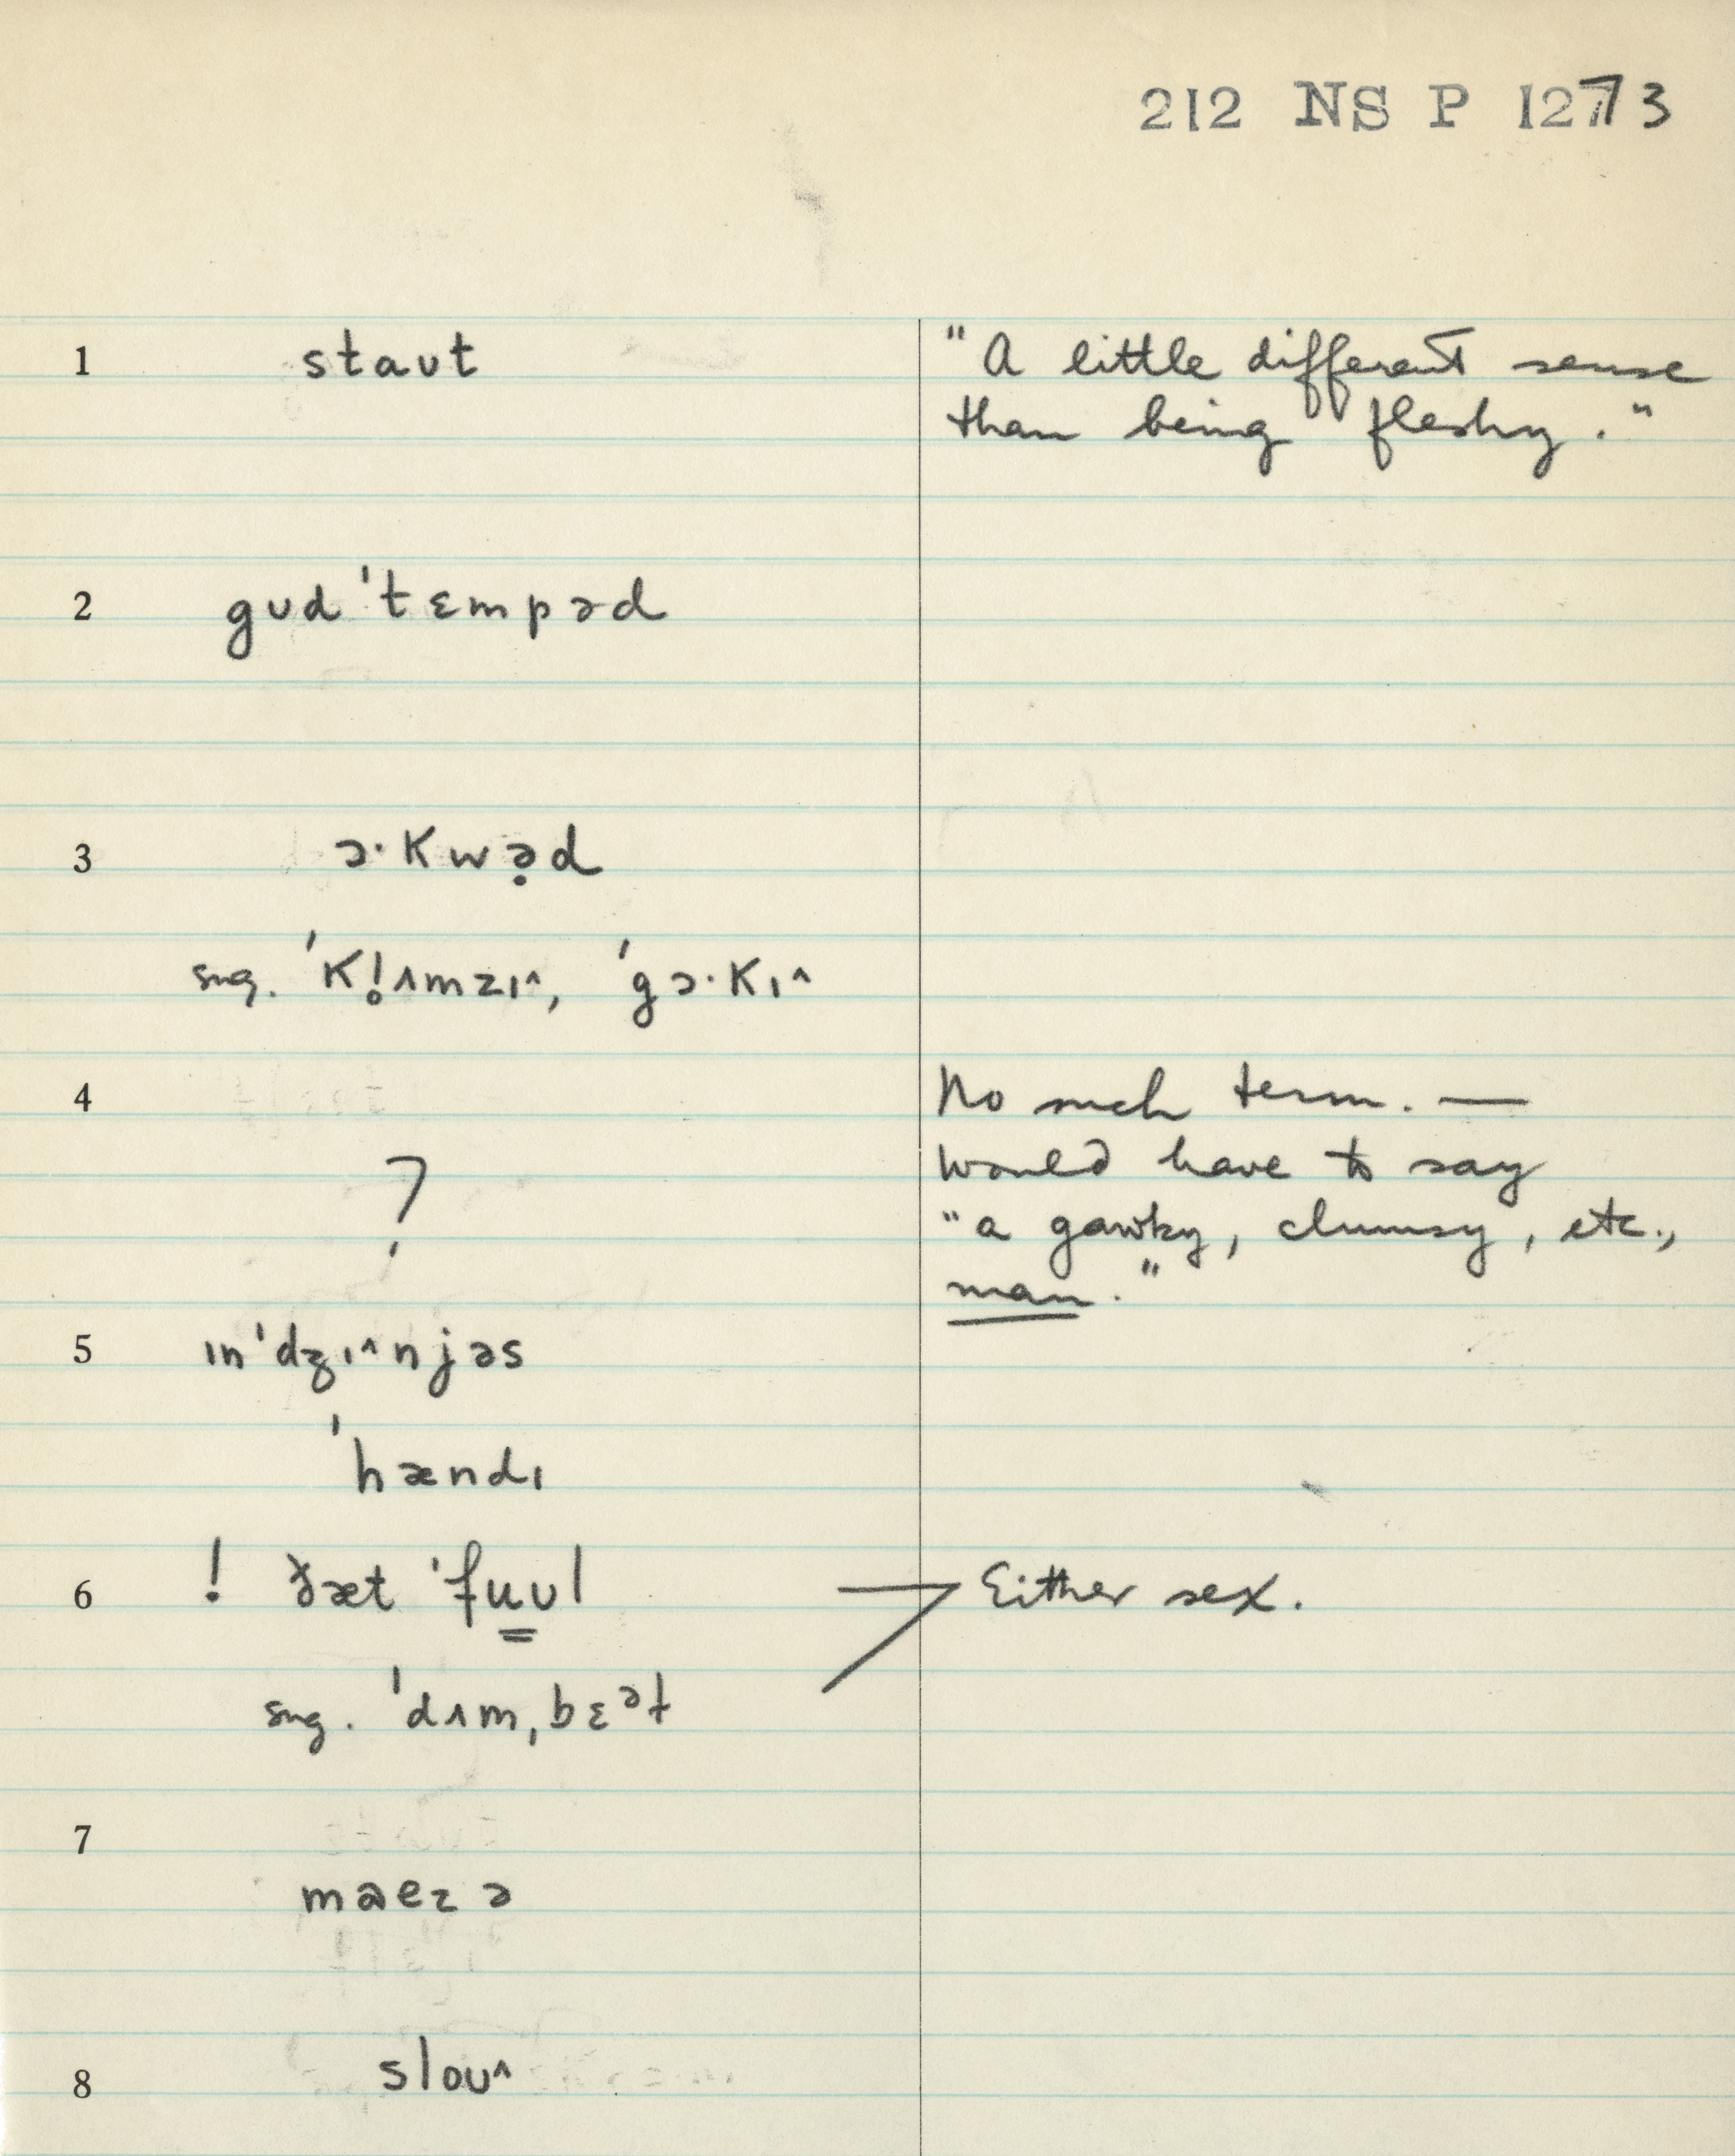 212 NS P 1273
1 staut "A little different sense
than being fleshy."
2 gud ˈtɛmpəd
3 ɔ·Kwə̣d
sug. ˈK!ʌmzɪ^, ˈgɔ·Kɪ^
4 No such term. —
would have to say
? "a gawky, clumsy, etc.,
man."
5 ɪnˈdʒɪ^njəs
ˈhændɪ
6 ! ðæt ˈfu̳ʊl Either sex.
sug. ˈdʌmˌbɛᵊɫ
7
maezə
8 sloʊ^